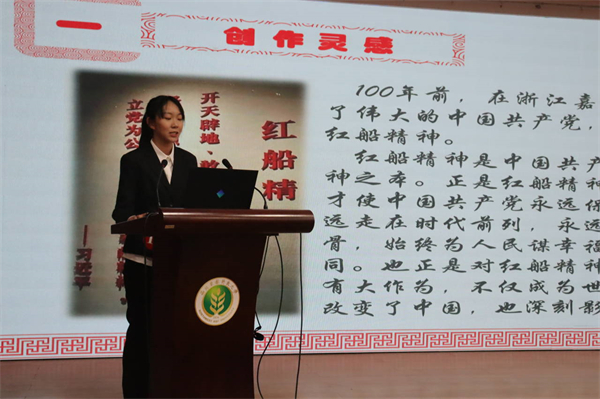 一
创作灵感
100年前，在浙江嘉
了伟大的中国共产党，
红船精神。
红船精神是中国共产
神之本。正是红船精神
才使中国共产党永远保
远走在时代前列，永远
骨，始终为人民谋幸福
同。也正是对红船精神
有大作为，不仅成为世
改变了中国，也深刻影
红船精
开天辟地、敢
立党为公
——习近平